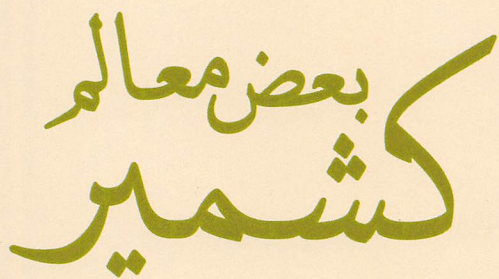 بعض معالم
كشمير